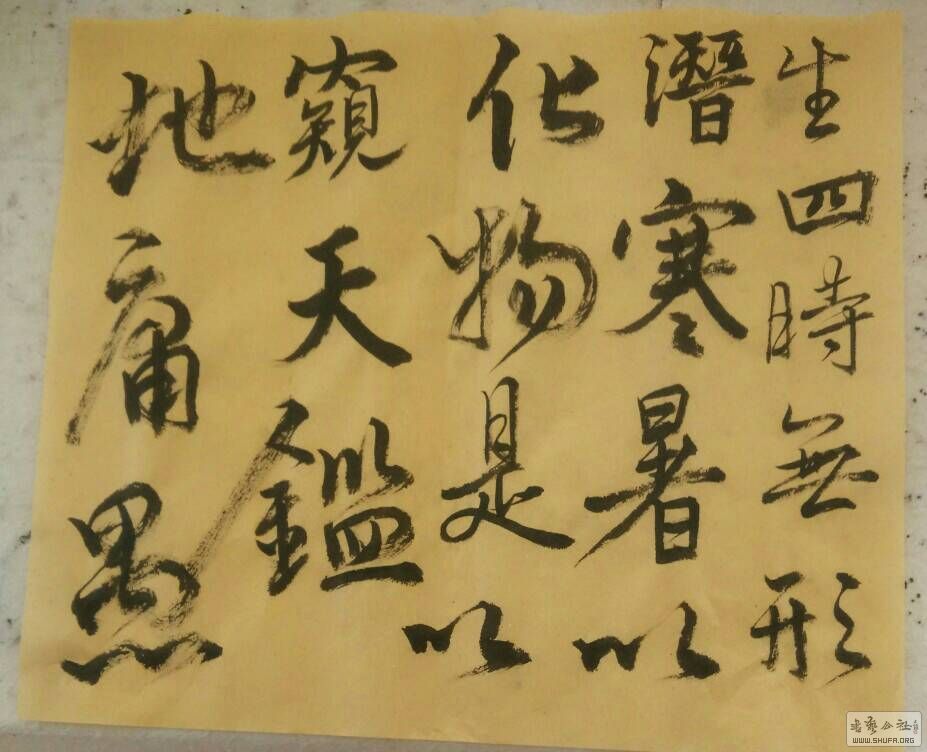 生四時無形
潛寒暑以
化物是以
窺天鑑
地庸愚
書藝公社
WWW.SHUFA.ORG